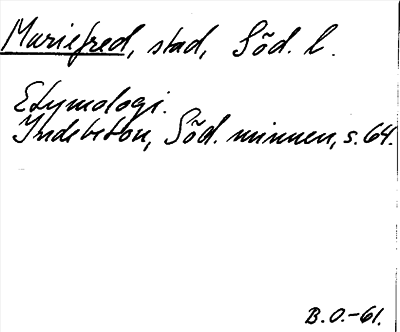 Mariefred, stad, Söd. l.
Etymologi.
Indebetou, Söd. minnen, s. 64.
B.O.-61.